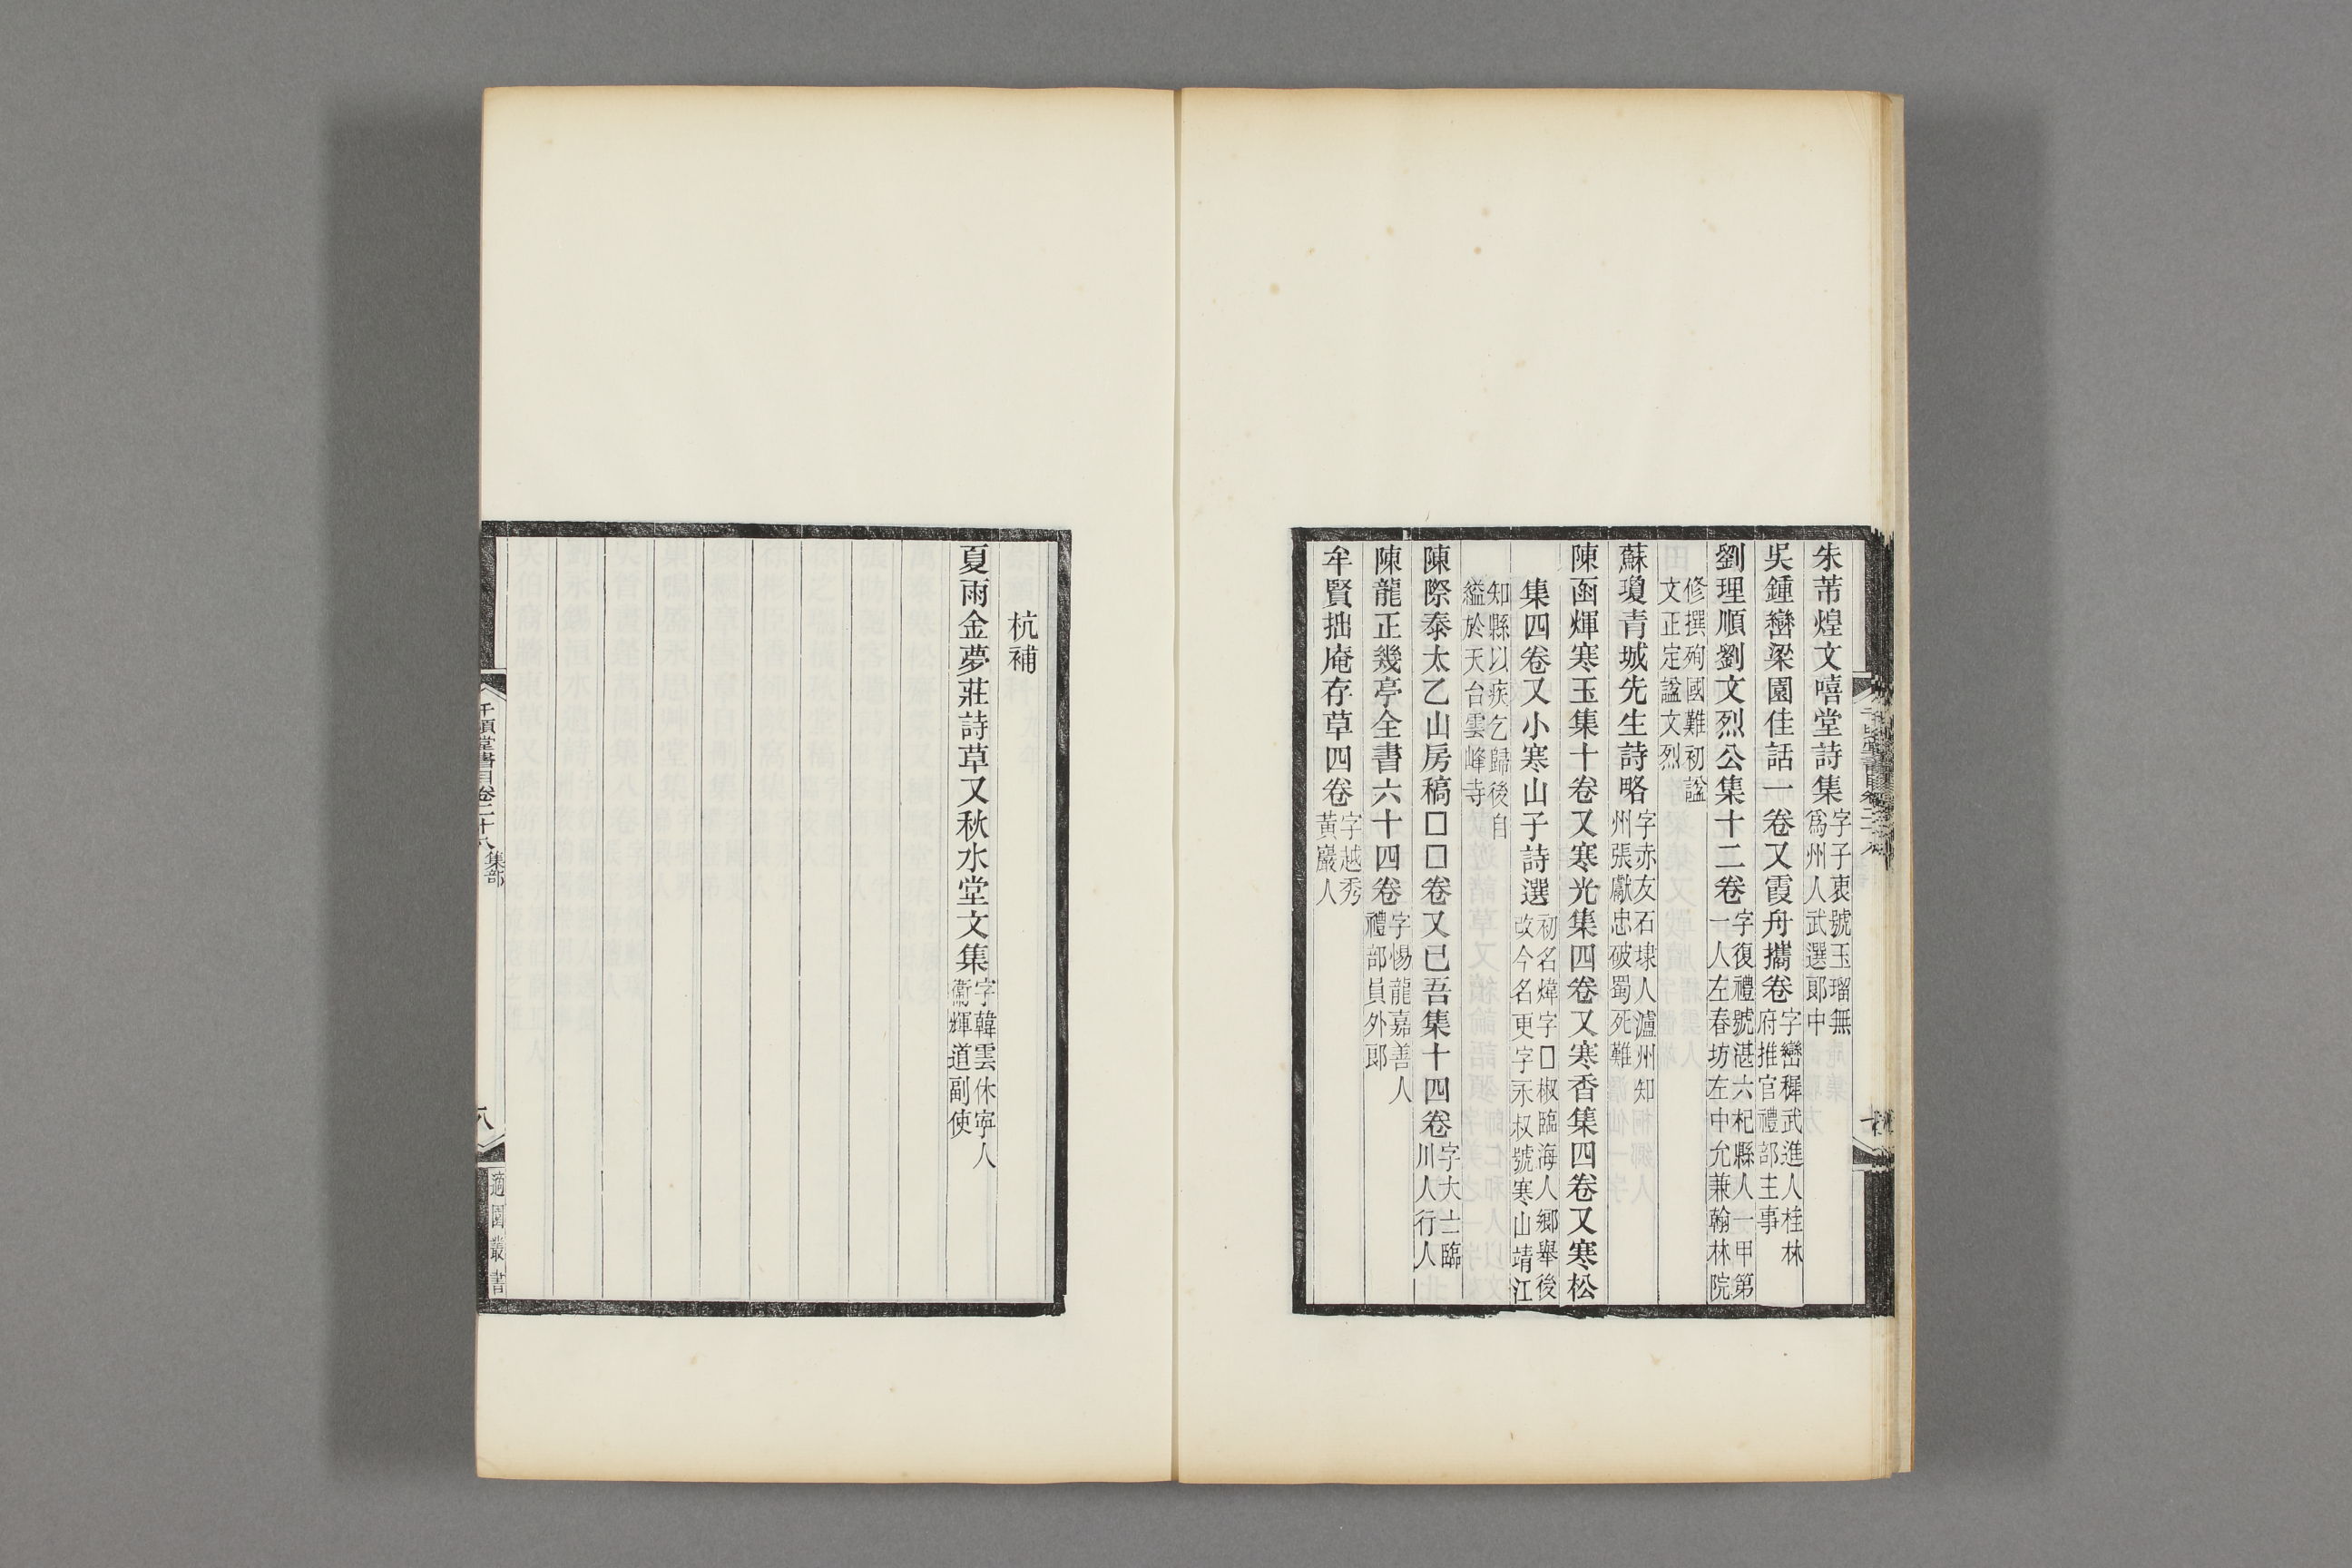 朱芾煌文嘻堂詩集字子衷號玉瑠無
爲州人武選郞中
吳鍾巒梁園佳話一卷又霞舟攜卷字巒穉武進人桂林
府推官禮部主事
劉理順劉文烈公集十二卷字復禮號湛六杞縣人一甲第
一人左春坊左中允兼翰林院
修撰殉國難初諡
文正定諡文烈
蘇瓊青城先生詩略字赤友石埭人瀘州知
州張獻忠破蜀死難
陳函煇寒玉集十卷又寒光集四卷又寒香集四卷又寒松
集四卷又小寒山子詩選初名煒字□椒臨海人鄉舉後
改今名更字木叔號寒山靖江
知縣以疾乞歸後自
縊於天台雲峰寺
陳際泰太乙山房稿□□卷又已吾集十四卷字大士臨
川人行人
陳龍正幾亭全書六十四卷字惕龍嘉善人
禮部員外郞
牟賢拙庵存草四卷字越秀
黃巖人
杭補
夏雨金夢莊詩草又秋水堂文集字韓雲休寧人
衞輝道副使
千頃堂書目卷二十八 集部
八
適園叢書